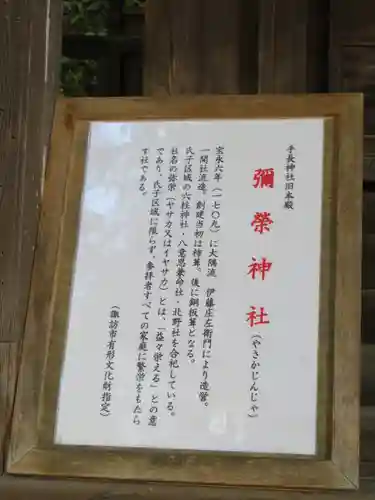 手長神社旧本殿
彌榮神社(やさかじんじゃ)
宝永六年(一七〇九)に大隅流 伊藤庄左衛門により造営。
一間社流造。創建当初は柿葺。後に銅板葺となる。
氏子区域の六柱神社・八意思兼命社・北野社を合祀している。
社名の弥栄(ヤサカ又はイヤサカ)とは、「益々栄える」との意
であり、氏子区域に限らず、参拝者すべての家庭に繁栄をもたら
す社である。
(諏訪市有形文化財指定)